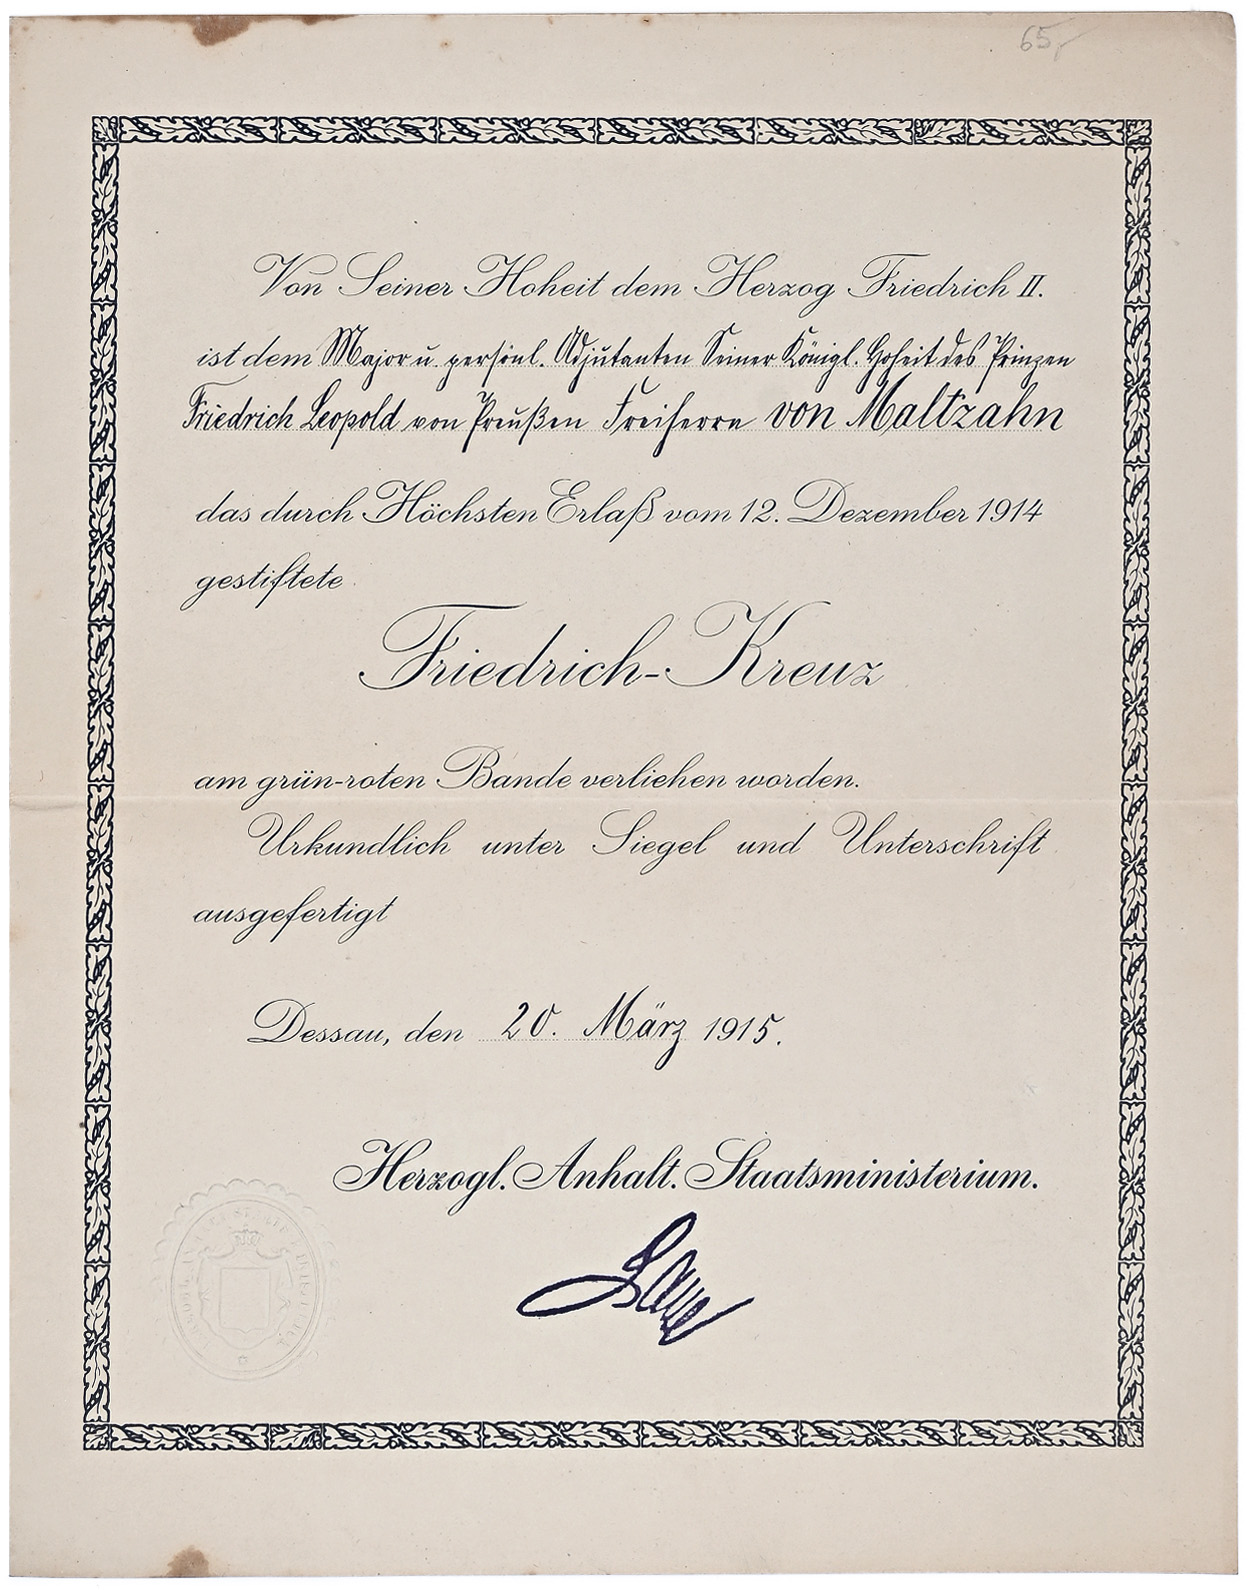 65,-
Von Seiner Hoheit dem Herzog Friedrich II.
ist dem Major u. persönl. Adjutanten Seiner Königl. Hoheit des Prinzen
Friedrich Leopold von Preußen Freiherrn von Maltzahn
das durch Höchsten Erlaß vom 12. Dezember 1914
gestiftete
Friedrich-Kreuz
am grün-roten Bande verliehen worden.
Urkundlich unter Siegel und Unterschrift
ausgefertigt
Dessau, den 20. März 1915.
Herzogl. Anhalt. Staatsministerium.